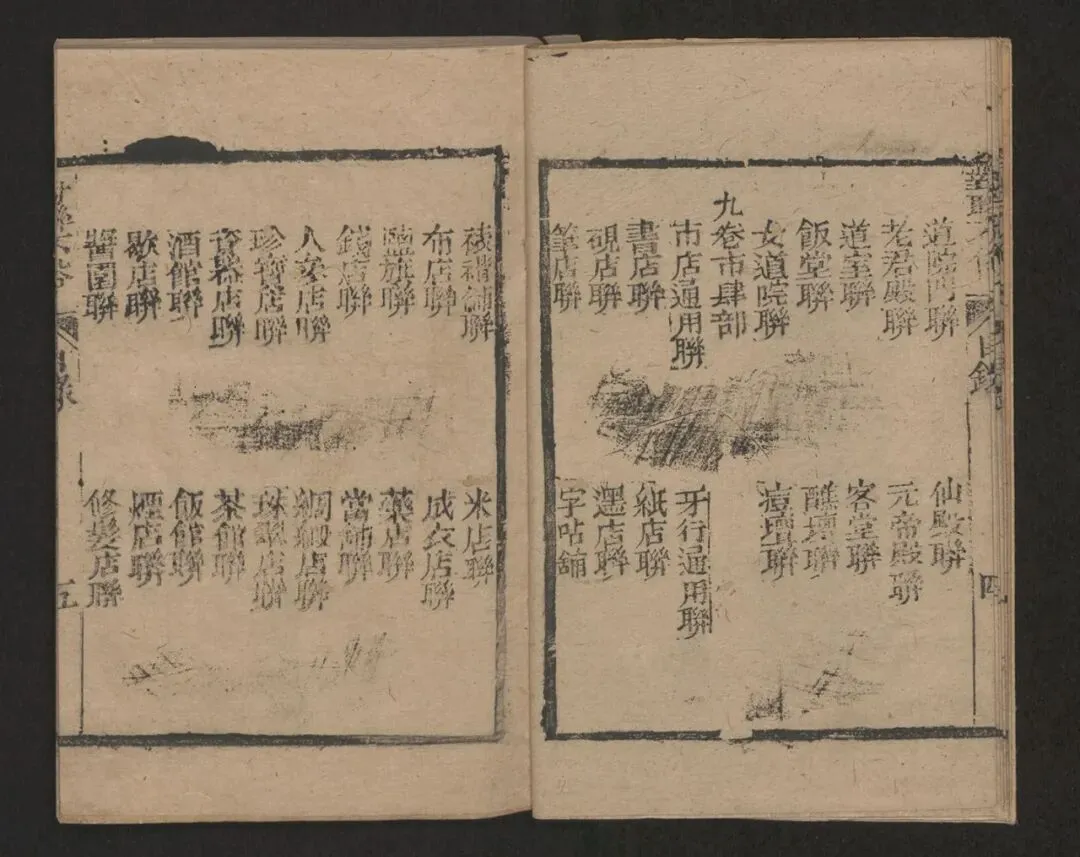 道院門聯
仙殿聯
老君殿聯
元帝殿聯
道室聯
客堂聯
飯堂聯
醮壇聯
女道院聯
痘壇聯
九卷市肆部
市店通用聯
牙行通用聯
書店聯
紙店聯
硯店聯
墨店聯
筆店聯
字呫舖
目錄
四
裱褙舖聯
米店聯
布店聯
成衣店聯
藥店聯
錢店聯
當舖聯
人參店聯
綢緞店聯
珍寶店聯
店聯
茶館聯
酒館聯
飯館聯
歇店聯
煙店聯
醬園聯
修髮店聯
目錄
五